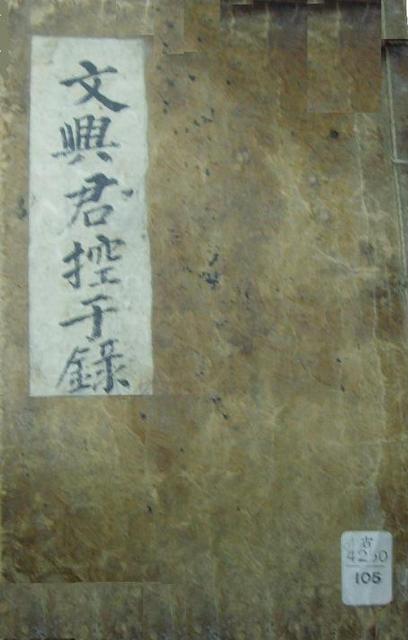 文興君控于錄
古
4250
105